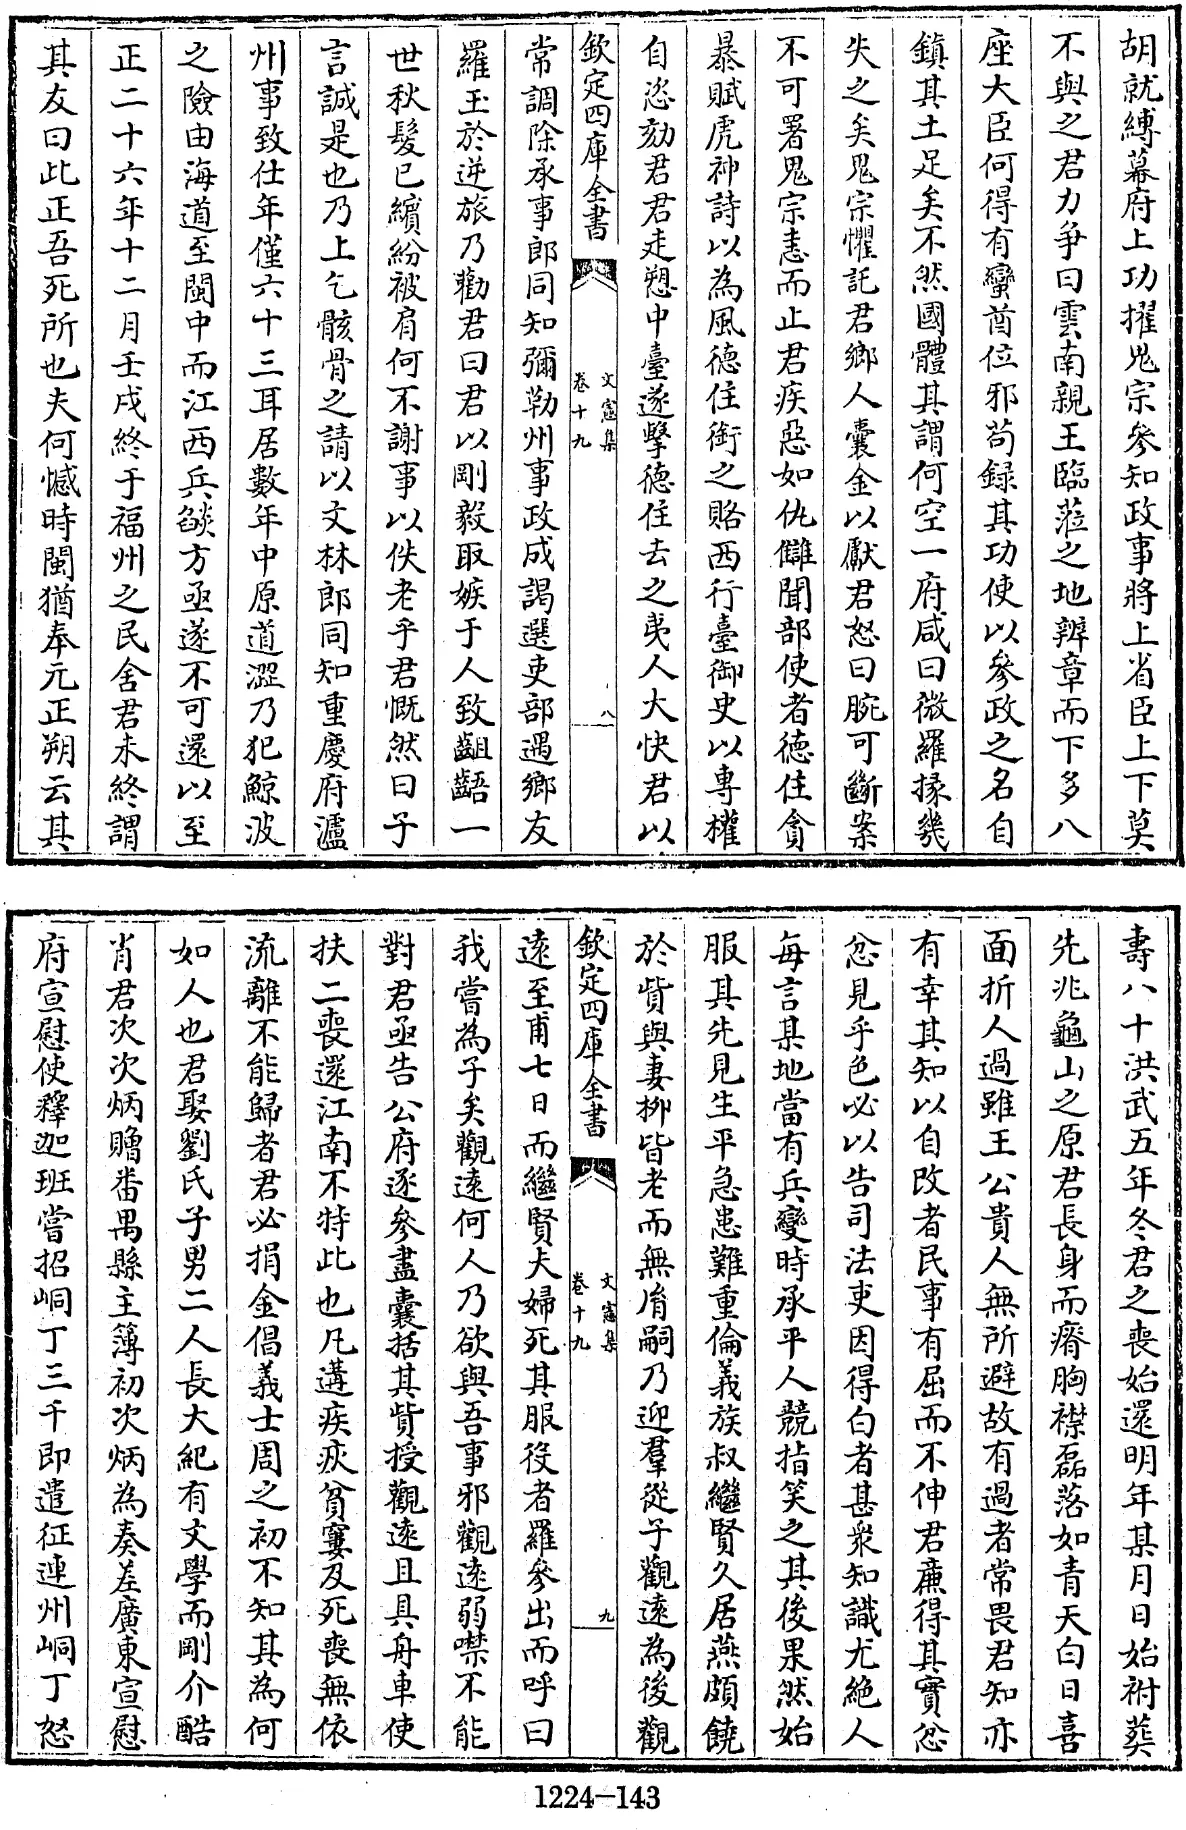 胡就縛幕府上功擢鬼宗參知政事將上省臣上下莫
不與之君力爭曰雲南親王臨蒞之地辨章而下多八
座大臣何得有蠻酋位邪苟録其功使以參政之名自
鎮其土足矣不然國體其謂何空一府咸曰微羅掾幾
失之矣鬼宗懼託君鄉人囊金以獻君怒曰腕可斷案
不可署鬼宗恚而止君疾惡如仇讎聞部使者德住貪
暴賦虎神詩以為風德住銜之賂西行臺御史以專權
自恣劾君君走愬中臺遂擊德住去之夷人大快君以
欽定四庫全書
文憲集
卷十九
八
常調除承事郎同知彌勒州事政成謁選吏部遇鄉友
羅玉於逆旅乃勸君曰君以剛毅取嫉于人致齟齬一
世秋髮已繽紛被肩何不謝事以佚老乎君慨然曰子
言誠是也乃上乞骸骨之請以文林郎同知重慶府瀘
州事致仕年僅六十三耳居數年中原道澀乃犯鯨波
之險由海道至閩中而江西兵燄方亟遂不可還以至
正二十六年十二月壬戌終于福州之民舍君未終謂
其友曰此正吾死所也夫何憾時閩猶奉元正朔云其
壽八十洪武五年冬君之喪始還明年某月日始祔葬
先兆龜山之原君長身而瘠胸襟磊落如青天白日喜
面折人過雖王公貴人無所避故有過者常畏君知亦
有幸其知以自改者民事有屈而不伸君廉得其實忿
忿見乎色必以告司法吏因得白者甚衆知識尤絶人
每言某地當有兵變時承平人競指笑之其後果然始
服其先見生平急患難重倫義族叔繼賢久居燕頗饒
於貲與妻柳皆老而無㣧嗣乃迎羣從子觀遠為後觀
欽定四庫全書
文憲集
卷十九
九
遠至甫七日而繼賢夫婦死其服役者羅參出而呼曰
我嘗為子矣觀遠何人乃欲與吾事邪觀遠弱噤不能
對君亟告公府逐參盡囊括其貲授觀遠且具舟車使
扶二喪還江南不特此也凡遘疾疢貧窶及死喪無依
流離不能歸者君必捐金倡義士周之初不知其為何
如人也君娶劉氏子男二人長大紀有文學而剛介酷
肖君次次炳贍番禺縣主簿初次炳為奏差廣東宣慰
府宣慰使釋迦班嘗招峒丁三千即遣征連州峒丁怒
1224-143